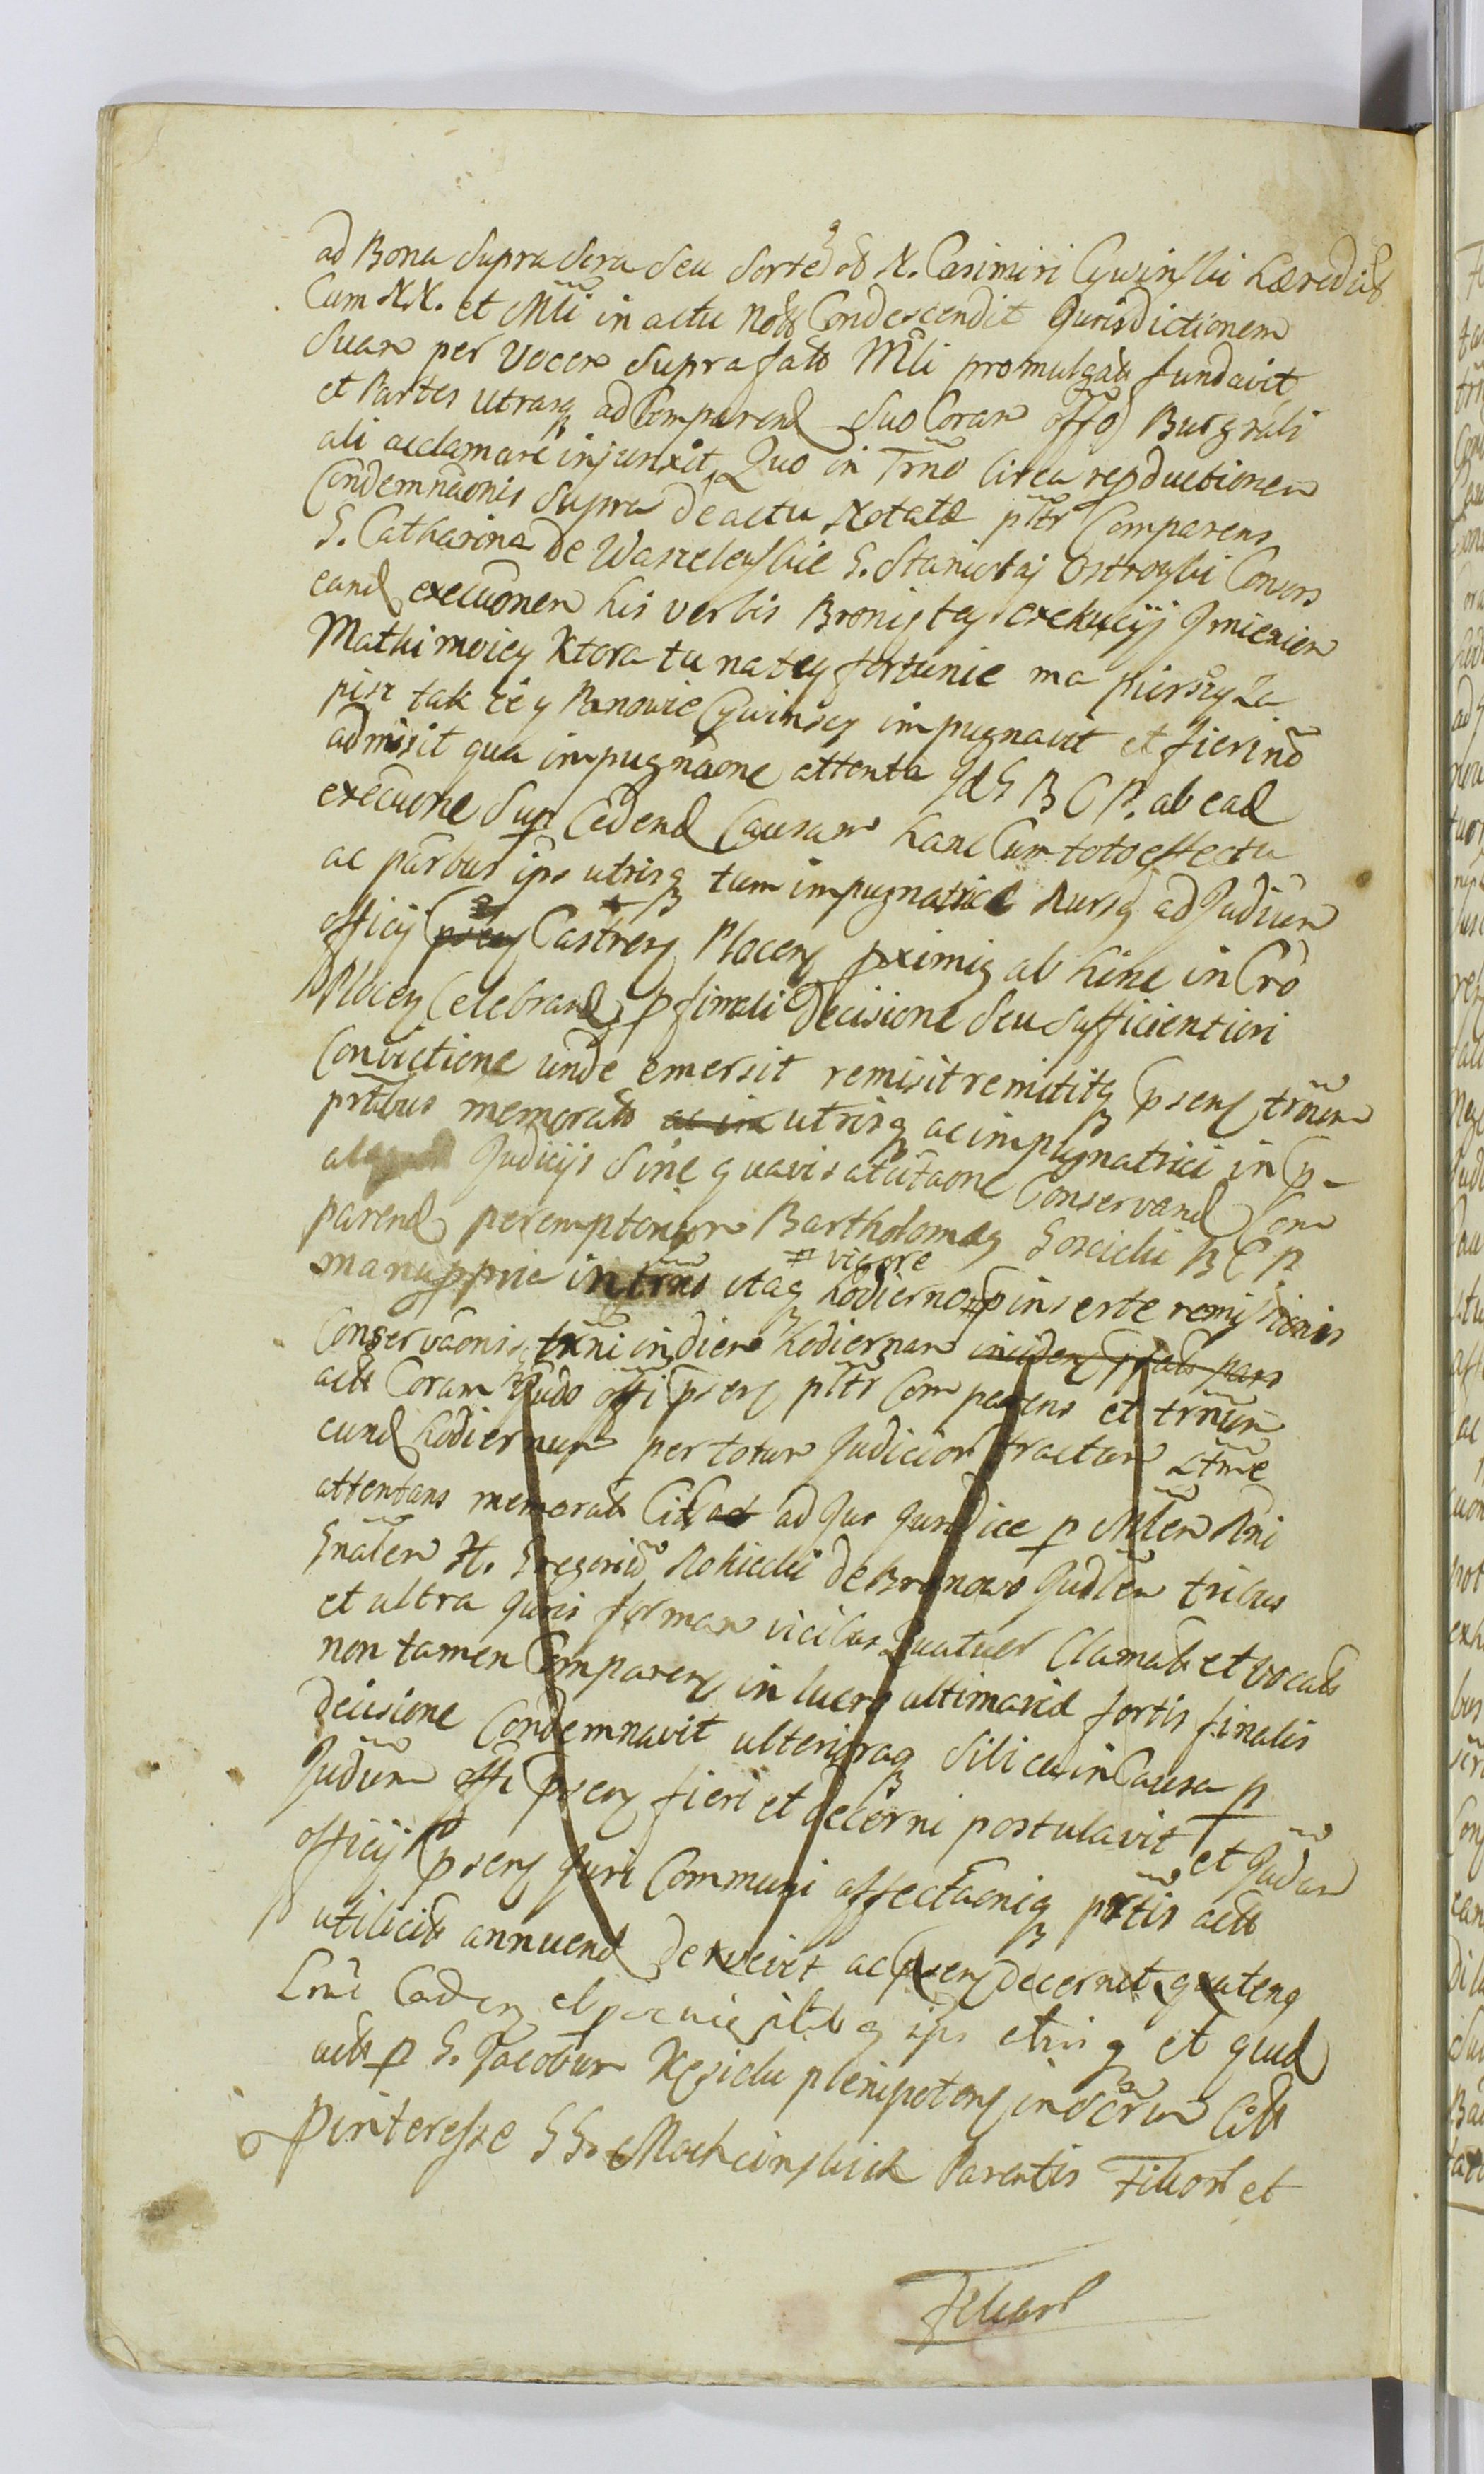 ad Bona Supra scra seu Sorte ad N. Casimiri Cywinski hæredit
Cum NN. et Mli in actu Notts Condescendit Jurisdictionem
Suam per vocem suprafatt Mli promulgatt fundavit,
et Partes utrasq ad Comparend suo Coram offo Burgrali
ali acclamare injunxit, Quo in Trno Circa reproductionem
Condemnãonis Supra de actu Notatæ pltr Comparens
G. Catharina de Wasielewskie G. Stanislaj Ostrowski Consors
eand execuõnem his verbis Bronię tey exekucyi Imieniem
Matki moiey Ktora tu na tey fortunie ma pierszy Za
pis tak ze y Panowie Cywinscy impugnavit et fieri nõ
admisit qua impugnãone attenta Id G B C P. ab ead
execuone Sup Cedend Causam hanc Cum toto effectu
ac parbus ips utrisq tum impugnatrice Rursq ad Judium
officij psens Castrens Plocens pximis ab hinc in Cro
Plocen Celebrand p finali Decisione Seu Sufficientiori
Convictione unde emersit remisit remititq psens trnum
prtibus memoratt ac in utrisq ac impugnatrici in p-
Judicijs Sine quavis atcitaone Conservand Com
parend peremptorium Bartholomæus Goscicki B C P
manu ppria in trno itaq # vigore hodierno # pinserte remissionis
Conservaonis, trni in diem hodiernam incidens pfatt pars
actt Coram Judo offi psens pltr Comparens et trnum
eund hodiernum per totum Judicior tractum Ltme
attentans memoratt Citt act ad Jus Juridice p Mlem Rni
Gnalem H. Gregorium Rokicki de Bronowo Judlem tribus
et ultra Juris formam vicibus Quatuor Clamatt et vocatt
non tamen Comparens in lucro ultimariæ sortis finalis
decisione Condemnavit ulterioraq Silicea in Causa p
Judium offi psens fieri et decerni postulavit et Judum
officij psens Juri Communi affectaoniq prtis actt
utilicitt annuend decrevit ac psens decernit, quatenq
Citt Caden et ips et quod
actt p G. Jacobum Kęsicki plenipotens in scrum Citt
Pinteresse GG. Mochcinskich Parentis Filior et
Filior